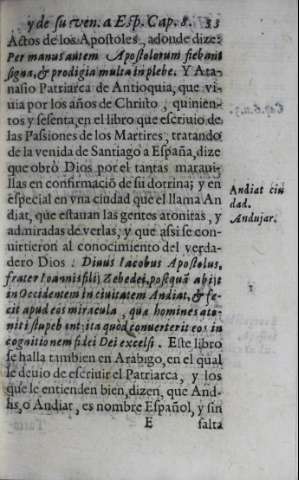 y de su ven. a Esp. Cap. 8. 33
Actos de los Apostoles, adonde dize:
Per manus autem Apostolorum fiebant
signa, & prodigia multa in plebe. Y Ata-
nasio Patriarca de Antioquia, que vi-
uia por los años de Christo, quinien-
tos y sesenta, en el libro que escriuio de
las Passiones de los Martires, tratando
de la venida de Santiago a España, dize
que obrò Dios por el tantas maraui-
llas en confirmació de su dotrina; y en
especial en vna ciudad que el llama An
diat, que estauan las gentes atonitas, y
admiradas de verlas, y que assi se con-
uirtieron al conocimiento del verda-
dero Dios: Diuus Iacobus Apostolus,
frater Ioannis filij Zebedei, postquã abijt
in Occidentem in ciuitatem Andiat, & fe-
cit apud eos miracula, quæ homines ato-
niti stupebant: ita quòd conuerterit eos in
cognitionem fidei Dei excelsi. Este libro
se halla tambien en Arabigo, en el qual
le deuio de escriuir el Patriarca, y los
que le entienden bien, dizen, que And-
is, o Andiat, es nombre Español, y sin
E falta
Andiat ciu
dad.
Andujar.